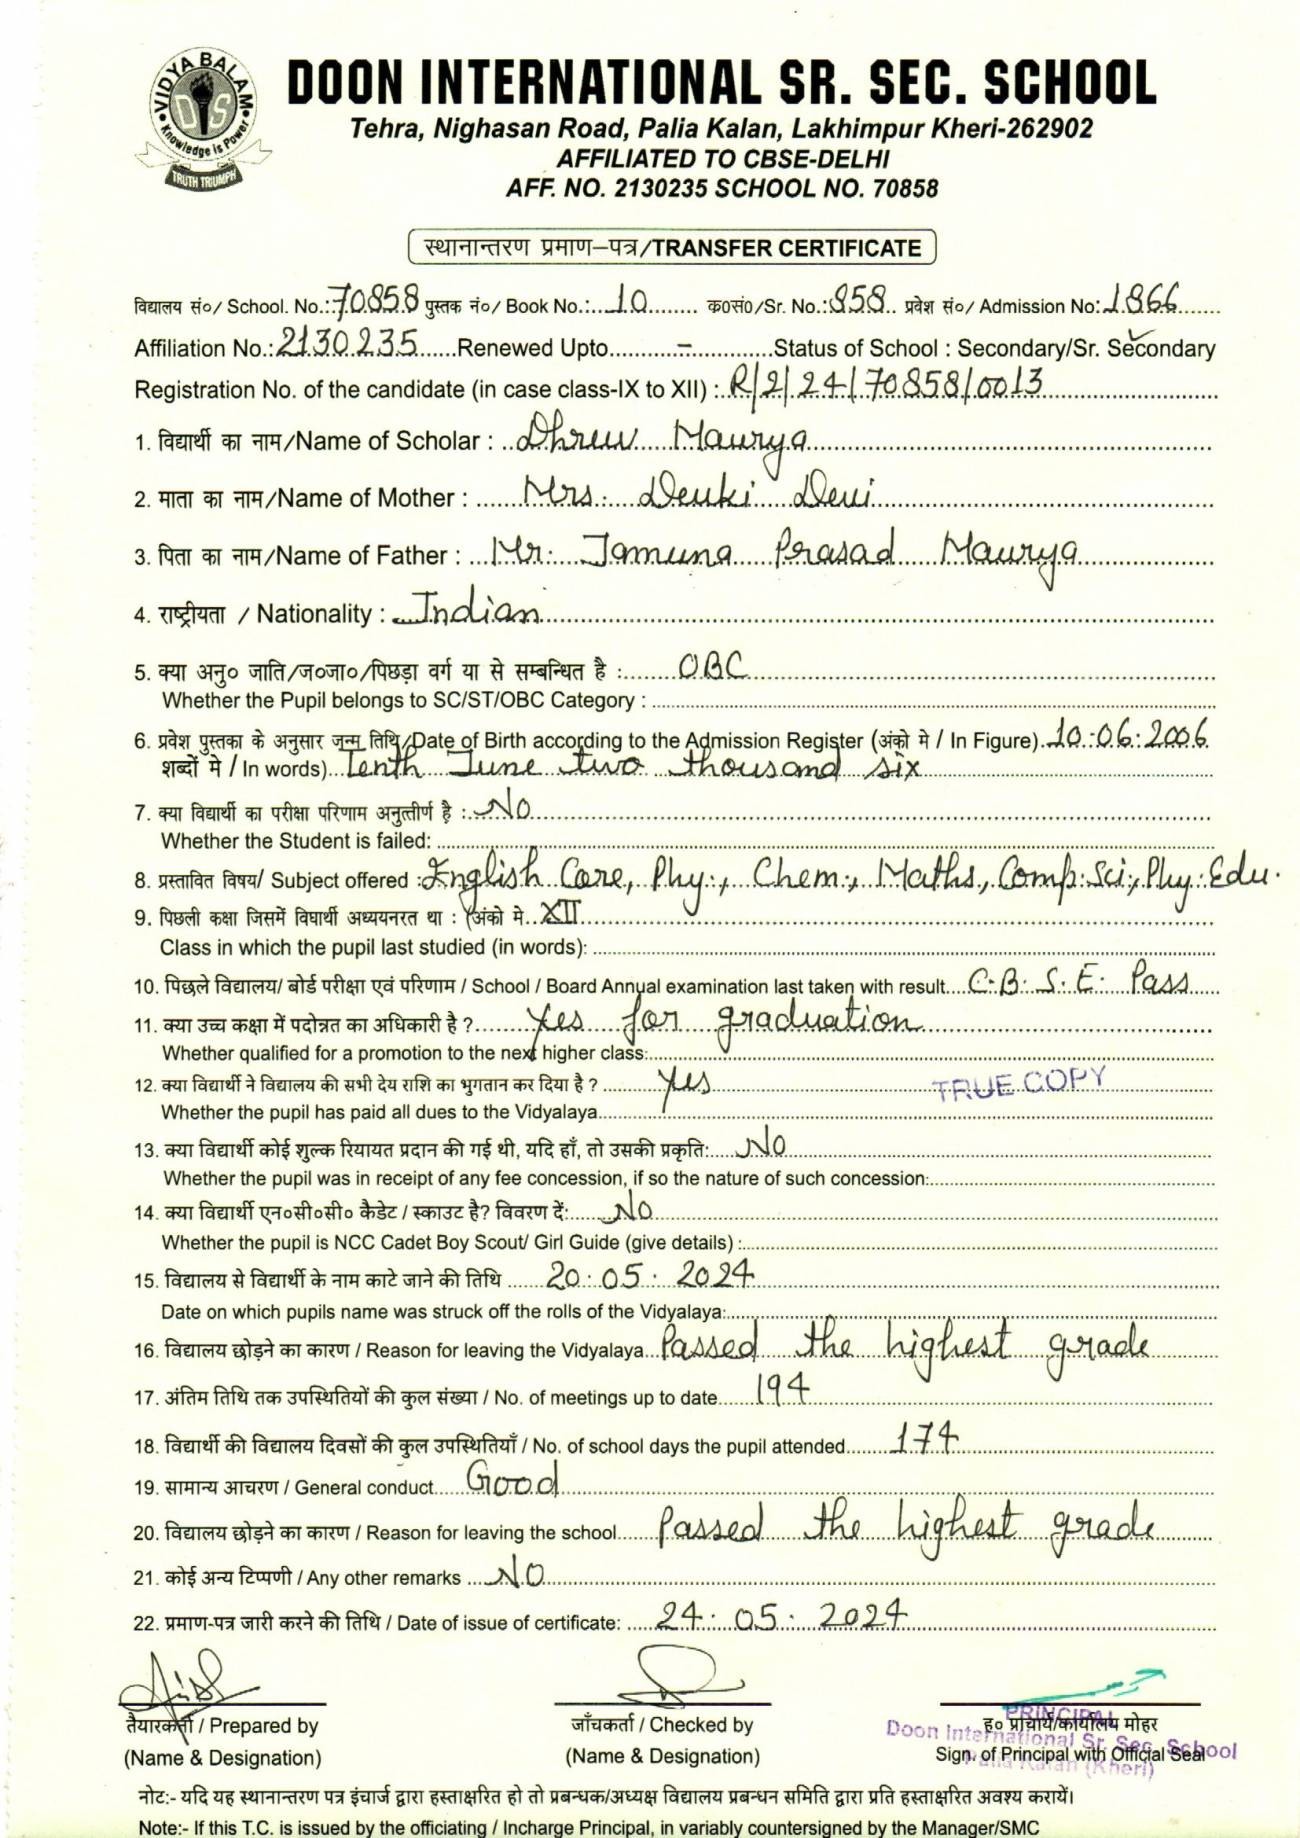 VIDYA BALAM
DIS
Knowledge is Power
TRUTH TRIUMPH
DOON INTERNATIONAL SR. SEC. SCHOOL
Tehra, Nighasan Road, Palia Kalan, Lakhimpur Kheri-262902
AFFILIATED TO CBSE-DELHI
AFF. NO. 2130235 SCHOOL NO. 70858
स्थानान्तरण प्रमाण–पत्र/TRANSFER CERTIFICATE
विद्यालय सं०/ School. No.:70858 पुस्तक नं०/ Book No.:....10........ क०सं०/Sr. No.:858.. प्रवेश सं०/ Admission No:1866
Affiliation No.:2130235......Renewed Upto..........–............Status of School : Secondary/Sr. Secondary
Registration No. of the candidate (in case class-IX to XII) : R/2/24/70858/0013
1. विद्यार्थी का नाम/Name of Scholar : Dhruv Maurya
2. माता का नाम/Name of Mother : Mrs. Deuki Devi
3. पिता का नाम/Name of Father : Mr. Jamuna Prasad Maurya
4. राष्ट्रीयता / Nationality : Indian
5. क्या अनु० जाति/ज०जा०/पिछड़ा वर्ग या से सम्बन्धित है : OBC
Whether the Pupil belongs to SC/ST/OBC Category :
6. प्रवेश पुस्तका के अनुसार जन्म तिथि/Date of Birth according to the Admission Register (अंको मे / In Figure) 10.06.2006
शब्दों मे / In words) Tenth June two thousand six
7. क्या विद्यार्थी का परीक्षा परिणाम अनुत्तीर्ण है : No
Whether the Student is failed:
8. प्रस्तावित विषय/ Subject offered : English Core, Phy., Chem., Maths, Comp. Sci., Phy. Edu.
9. पिछली कक्षा जिसमें विघार्थी अध्ययनरत था : (अंको मे XII
Class in which the pupil last studied (in words):
10. पिछले विद्यालय/ बोर्ड परीक्षा एवं परिणाम / School / Board Annual examination last taken with result C.B.S.E. Pass
11. क्या उच्च कक्षा में पदोन्नत का अधिकारी है ? Yes for graduation
Whether qualified for a promotion to the next higher class:
12. क्या विद्यार्थी ने विद्यालय की सभी देय राशि का भुगतान कर दिया है ? Yes TRUE COPY
Whether the pupil has paid all dues to the Vidyalaya
13. क्या विद्यार्थी कोई शुल्क रियायत प्रदान की गई थी, यदि हाँ, तो उसकी प्रकृति: No
Whether the pupil was in receipt of any fee concession, if so the nature of such concession:
14. क्या विद्यार्थी एन०सी०सी० कैडेट / स्काउट है? विवरण दें: No
Whether the pupil is NCC Cadet Boy Scout/ Girl Guide (give details) :
15. विद्यालय से विद्यार्थी के नाम काटे जाने की तिथि 20.05.2024
Date on which pupils name was struck off the rolls of the Vidyalaya:
16. विद्यालय छोड़ने का कारण / Reason for leaving the Vidyalaya Passed the highest grade
17. अंतिम तिथि तक उपस्थितियों की कुल संख्या / No. of meetings up to date 194
18. विद्यार्थी की विद्यालय दिवसों की कुल उपस्थितियाँ / No. of school days the pupil attended 174
19. सामान्य आचरण / General conduct Good
20. विद्यालय छोड़ने का कारण / Reason for leaving the school Passed the highest grade
21. कोई अन्य टिप्पणी / Any other remarks No
22. प्रमाण-पत्र जारी करने की तिथि / Date of issue of certificate: 24.05.2024
PRINCIPAL
तैयारकर्ता / Prepared by जाँचकर्ता / Checked by ह० प्राचार्य/कार्यालय मोहर
Doon International Sr. Sec. School
(Name & Designation) (Name & Designation) Sign. of Principal with Official Seal
Palia Kalan (Kheri)
नोट:- यदि यह स्थानान्तरण पत्र इंचार्ज द्वारा हस्ताक्षरित हो तो प्रबन्धक/अध्यक्ष विद्यालय प्रबन्धन समिति द्वारा प्रति हस्ताक्षरित अवश्य करायें।
Note:- If this T.C. is issued by the officiating / Incharge Principal, in variably countersigned by the Manager/SMC